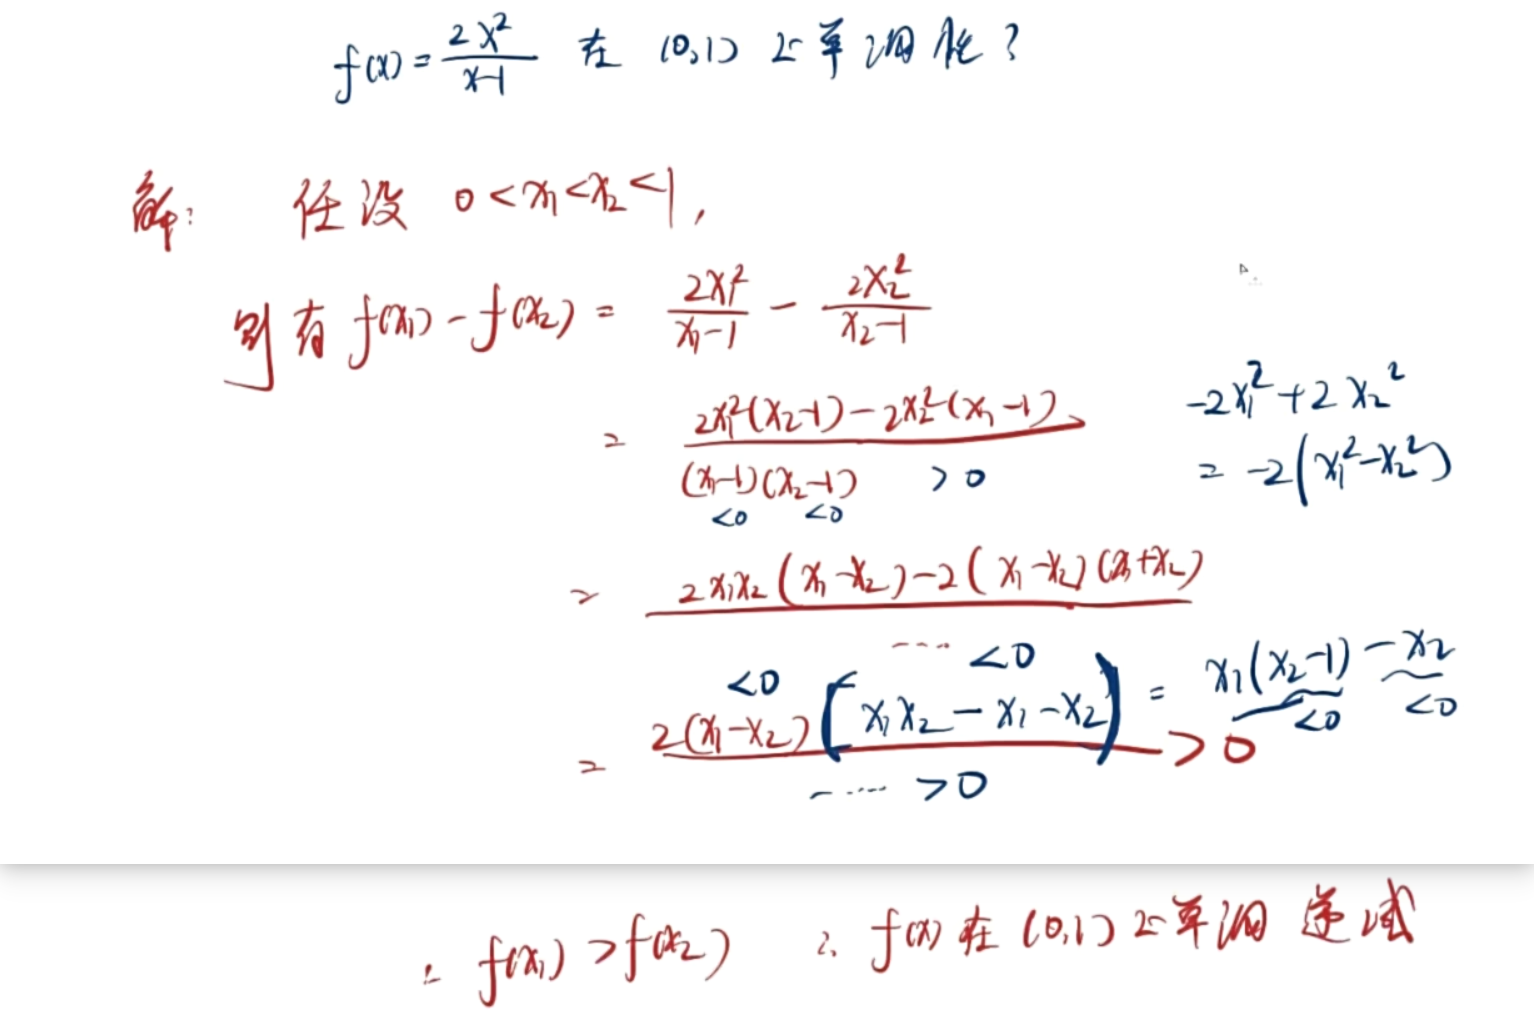 f(x) = 2x²/(x-1) 在 (0,1) 上单调性?
解: 任设 0<x₁<x₂<1,
则有 f(x₁) - f(x₂) = 2x₁²/(x₁-1) - 2x₂²/(x₂-1)
= (2x₁²(x₂-1) - 2x₂²(x₁-1))/((x₁-1)(x₂-1)) >0
<0 <0
-2x₁²+2x₂²
= -2(x₁²-x₂²)
= (2x₁x₂(x₁-x₂)-2(x₁-x₂)(x₁+x₂))/....
<0 <0
= 2(x₁-x₂)(x₁x₂-x₁-x₂)/..... >0
= x₁(x₂-1) -x₂
<0 <0
>0
∴ f(x₁) >f(x₂) ∴ f(x) 在 (0,1) 上单调递减